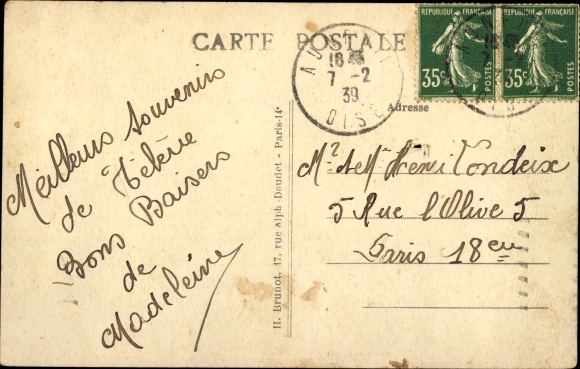 CARTE POSTALE
RÉPUBLIQUE FRANÇAISE
35c
POSTES
RÉPUBLIQUE FRANÇAISE
35c
POSTES
18
7 - 2
39
OISE
Adresse
Meilleurs souvenirs
de
Bons Baisers
de
Madeleine
H. Brunot, 17, rue Alph-Daudet - Paris-14e
Mr et Me Henri Vondeix
5 Rue l'Olive 5
Paris 18eu